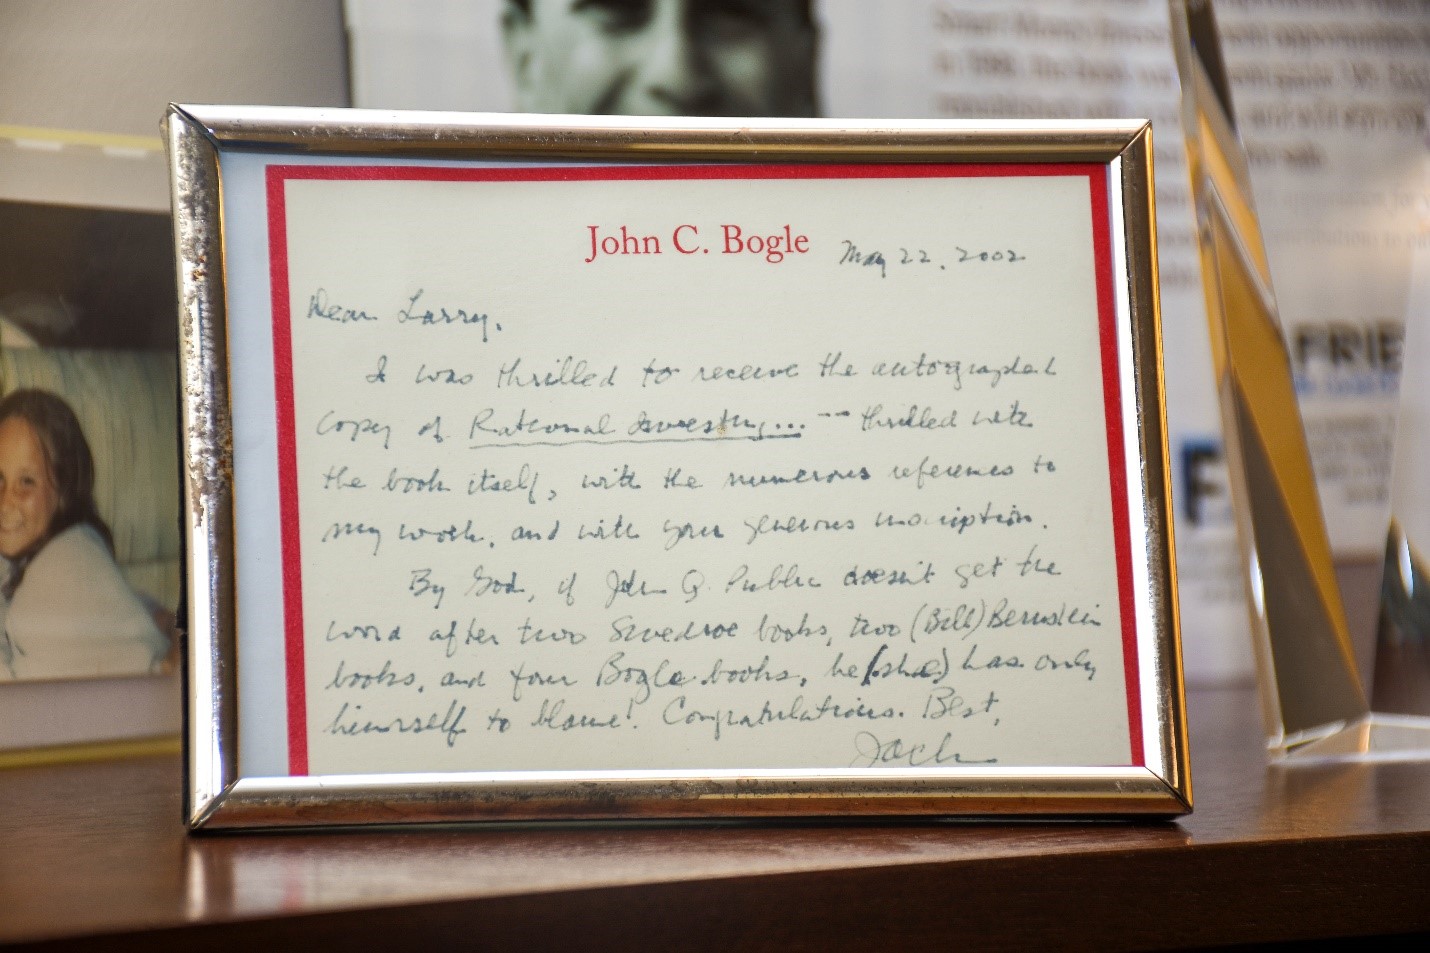 John C. Bogle
May 22, 2002
Dear Larry,
I was thrilled to receive the autographed
copy of Rational Investing... -- thrilled with
the book itself, with the numerous references to
my work, and with your generous inscription.
By God, if John Q. Public doesn't get the
word after two Swedroe books, two (Bill) Bernstein
books, and four Bogle books, he (she) has only
himself to blame! Congratulations. Best,
Jack
FRIE
F